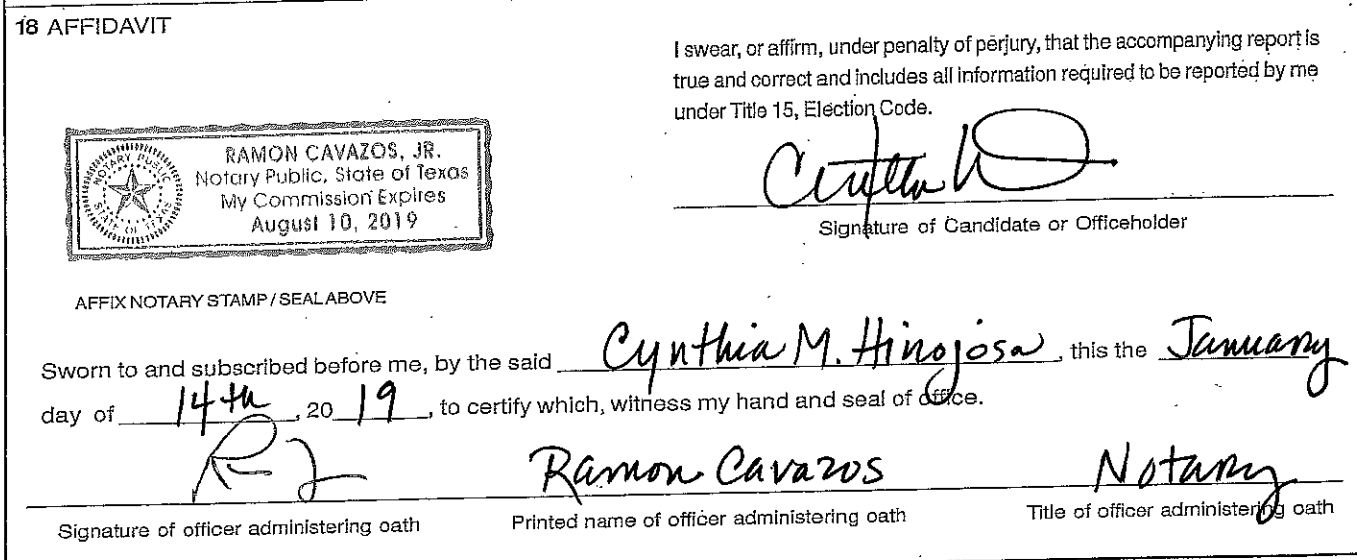 18 AFFIDAVIT
I swear, or affirm, under penalty of perjury, that the accompanying report is
true and correct and includes all information required to be reported by me
under Title 15, Election Code.
NOTARY PUBLIC
STATE OF TEXAS
RAMON CAVAZOS, JR.
Notary Public, State of Texas
My Commission Expires
August 10, 2019
Signature of Candidate or Officeholder
AFFIX NOTARY STAMP / SEAL ABOVE
Sworn to and subscribed before me, by the said Cynthia M. Hinojosa, this the January
day of 14th, 20 19, to certify which, witness my hand and seal of office.
Ramon Cavazos Notary
Signature of officer administering oath Printed name of officer administering oath Title of officer administering oath